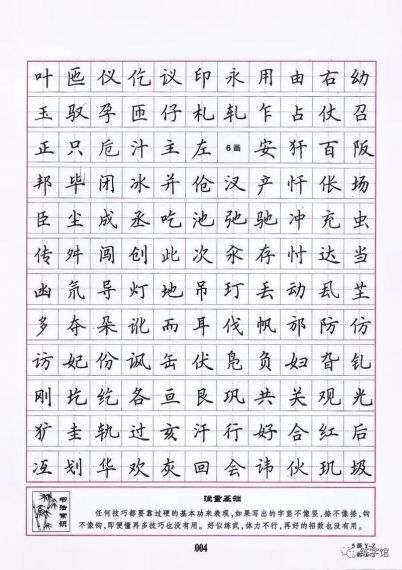 叶 匜 仪 仡 议 印 永 用 由 右 幼
玉 驭 孕 匝 仔 札 轧 乍 占 仗 召
正 只 卮 汁 主 左 6画 安 犴 百 阪
邦 毕 闭 冰 并 伧 汊 产 忏 伥 场
臣 尘 成 丞 吃 池 弛 驰 冲 充 虫
传 舛 闯 创 此 次 汆 存 忖 达 当
凼 氘 导 灯 地 吊 玎 丢 动 厾 垩
多 夺 朵 讹 而 耳 伐 帆 邡 防 仿
访 妃 份 讽 缶 伏 凫 负 妇 旮 钆
刚 圪 纥 各 亘 艮 巩 共 关 观 光
犷 圭 轨 过 亥 汗 行 好 合 红 后
冱 划 华 欢 灰 回 会 讳 伙 玑 圾
书法常识
注重基础
任何技巧都要靠过硬的基本功来表现,如果写出的字竖不像竖,捺不像捺,钩
不像钩,即便懂再多技巧也没有用。好似练武,体力不行,再好的招数也没有用。
004
5画 Y-Z